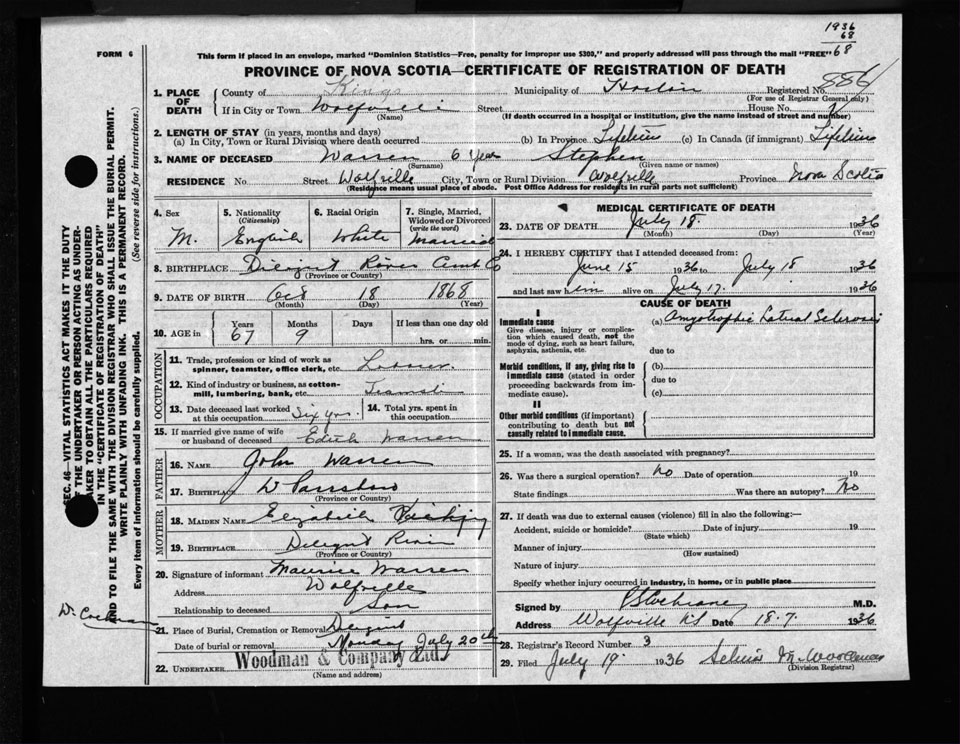 1936
68
FORM 6
This form if placed in an envelope, marked "Dominion Statistics—Free, penalty for improper use $300," and properly addressed will pass through the mail "FREE" 68
PROVINCE OF NOVA SCOTIA—CERTIFICATE OF REGISTRATION OF DEATH
886
1. PLACE OF DEATH
County of Kings Municipality of Horton Registered No.
(For use of Registrar General only)
If in City or Town Wolfville Street House No.
(Name) (If death occurred in a hospital or institution, give the name instead of street and number)
2. LENGTH OF STAY (in years, months and days)
(a) In City, Town or Rural Division where death occurred 6 years (b) In Province Lifetime (c) In Canada (if immigrant) Lifetime
3. NAME OF DECEASED Warren Stephen
(Surname) (Given name or names)
RESIDENCE No. Street Wolfville City, Town or Rural Division Wolfville Province Nova Scotia
(Residence means usual place of abode. Post Office Address for residents in rural parts not sufficient)
4. Sex M.
5. Nationality (Citizenship) English
6. Racial Origin White
7. Single, Married, Widowed or Divorced (write the word) Married
8. BIRTHPLACE Diligent River Cumb Co
(Province or Country)
9. DATE OF BIRTH Oct 18 1868
(Month) (Day) (Year)
10. AGE in Years 67 Months 9 Days If less than one day old hrs. or min.
OCCUPATION
11. Trade, profession or kind of work as spinner, teamster, office clerk, etc.
12. Kind of industry or business, as cotton-mill, lumbering, bank, etc.
13. Date deceased last worked at this occupation Six yrs.
14. Total yrs. spent in this occupation
15. If married give name of wife or husband of deceased Edith Warren
FATHER
16. NAME John Warren
17. BIRTHPLACE Parrsboro
(Province or Country)
MOTHER
18. MAIDEN NAME Elizabeth
19. BIRTHPLACE Diligent River
(Province or Country)
20. Signature of informant Maurice Warren
Address Wolfville
Relationship to deceased Son
21. Place of Burial, Cremation or Removal Diligent
Date of burial or removal Monday July 20th
22. UNDERTAKER Woodman & Company Ltd.
(Name and address)
MEDICAL CERTIFICATE OF DEATH
23. DATE OF DEATH July 18 1936
(Month) (Day) (Year)
24. I HEREBY CERTIFY that I attended deceased from:
June 15 1936 to July 18 1936
and last saw him alive on July 17. 1936
CAUSE OF DEATH
I
Immediate cause
Give disease, injury or complication which caused death, not the mode of dying, such as heart failure, asphyxia, asthenia, etc.
(a) Amyotrophic Lateral Sclerosis
due to
Morbid conditions, if any, giving rise to immediate cause (stated in order proceeding backwards from immediate cause).
(b)
due to
(c)
II
Other morbid conditions (if important) contributing to death but not causally related to immediate cause.
25. If a woman, was the death associated with pregnancy?
26. Was there a surgical operation? No Date of operation 19
State findings Was there an autopsy? No
27. If death was due to external causes (violence) fill in also the following:—
Accident, suicide or homicide? Date of injury 19
(State which)
Manner of injury
(How sustained)
Nature of injury
Specify whether injury occurred in industry, in home, or in public place
Signed by Cochrane M.D.
Address Wolfville NS Date 18.7. 1936
28. Registrar's Record Number 3
29. Filed July 19. 1936 M. Woodman
(Division Registrar)
SEC. 46—VITAL STATISTICS ACT MAKES IT THE DUTY
OF THE UNDERTAKER OR PERSON ACTING AS UNDER-
TAKER TO OBTAIN ALL THE PARTICULARS REQUIRED
IN THE "CERTIFICATE OF REGISTRATION OF DEATH"
AND TO FILE THE SAME WITH THE DIVISION REGISTRAR WHO SHALL ISSUE THE BURIAL PERMIT.
WRITE PLAINLY WITH UNFADING INK. THIS IS A PERMANENT RECORD.
Every item of information should be carefully supplied. (See reverse side for instructions.)
Dr. Cochrane